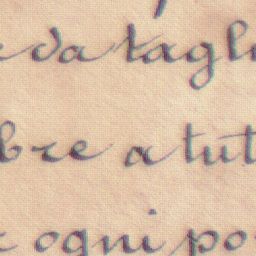 e da tagli
bre a tut
e ogni po